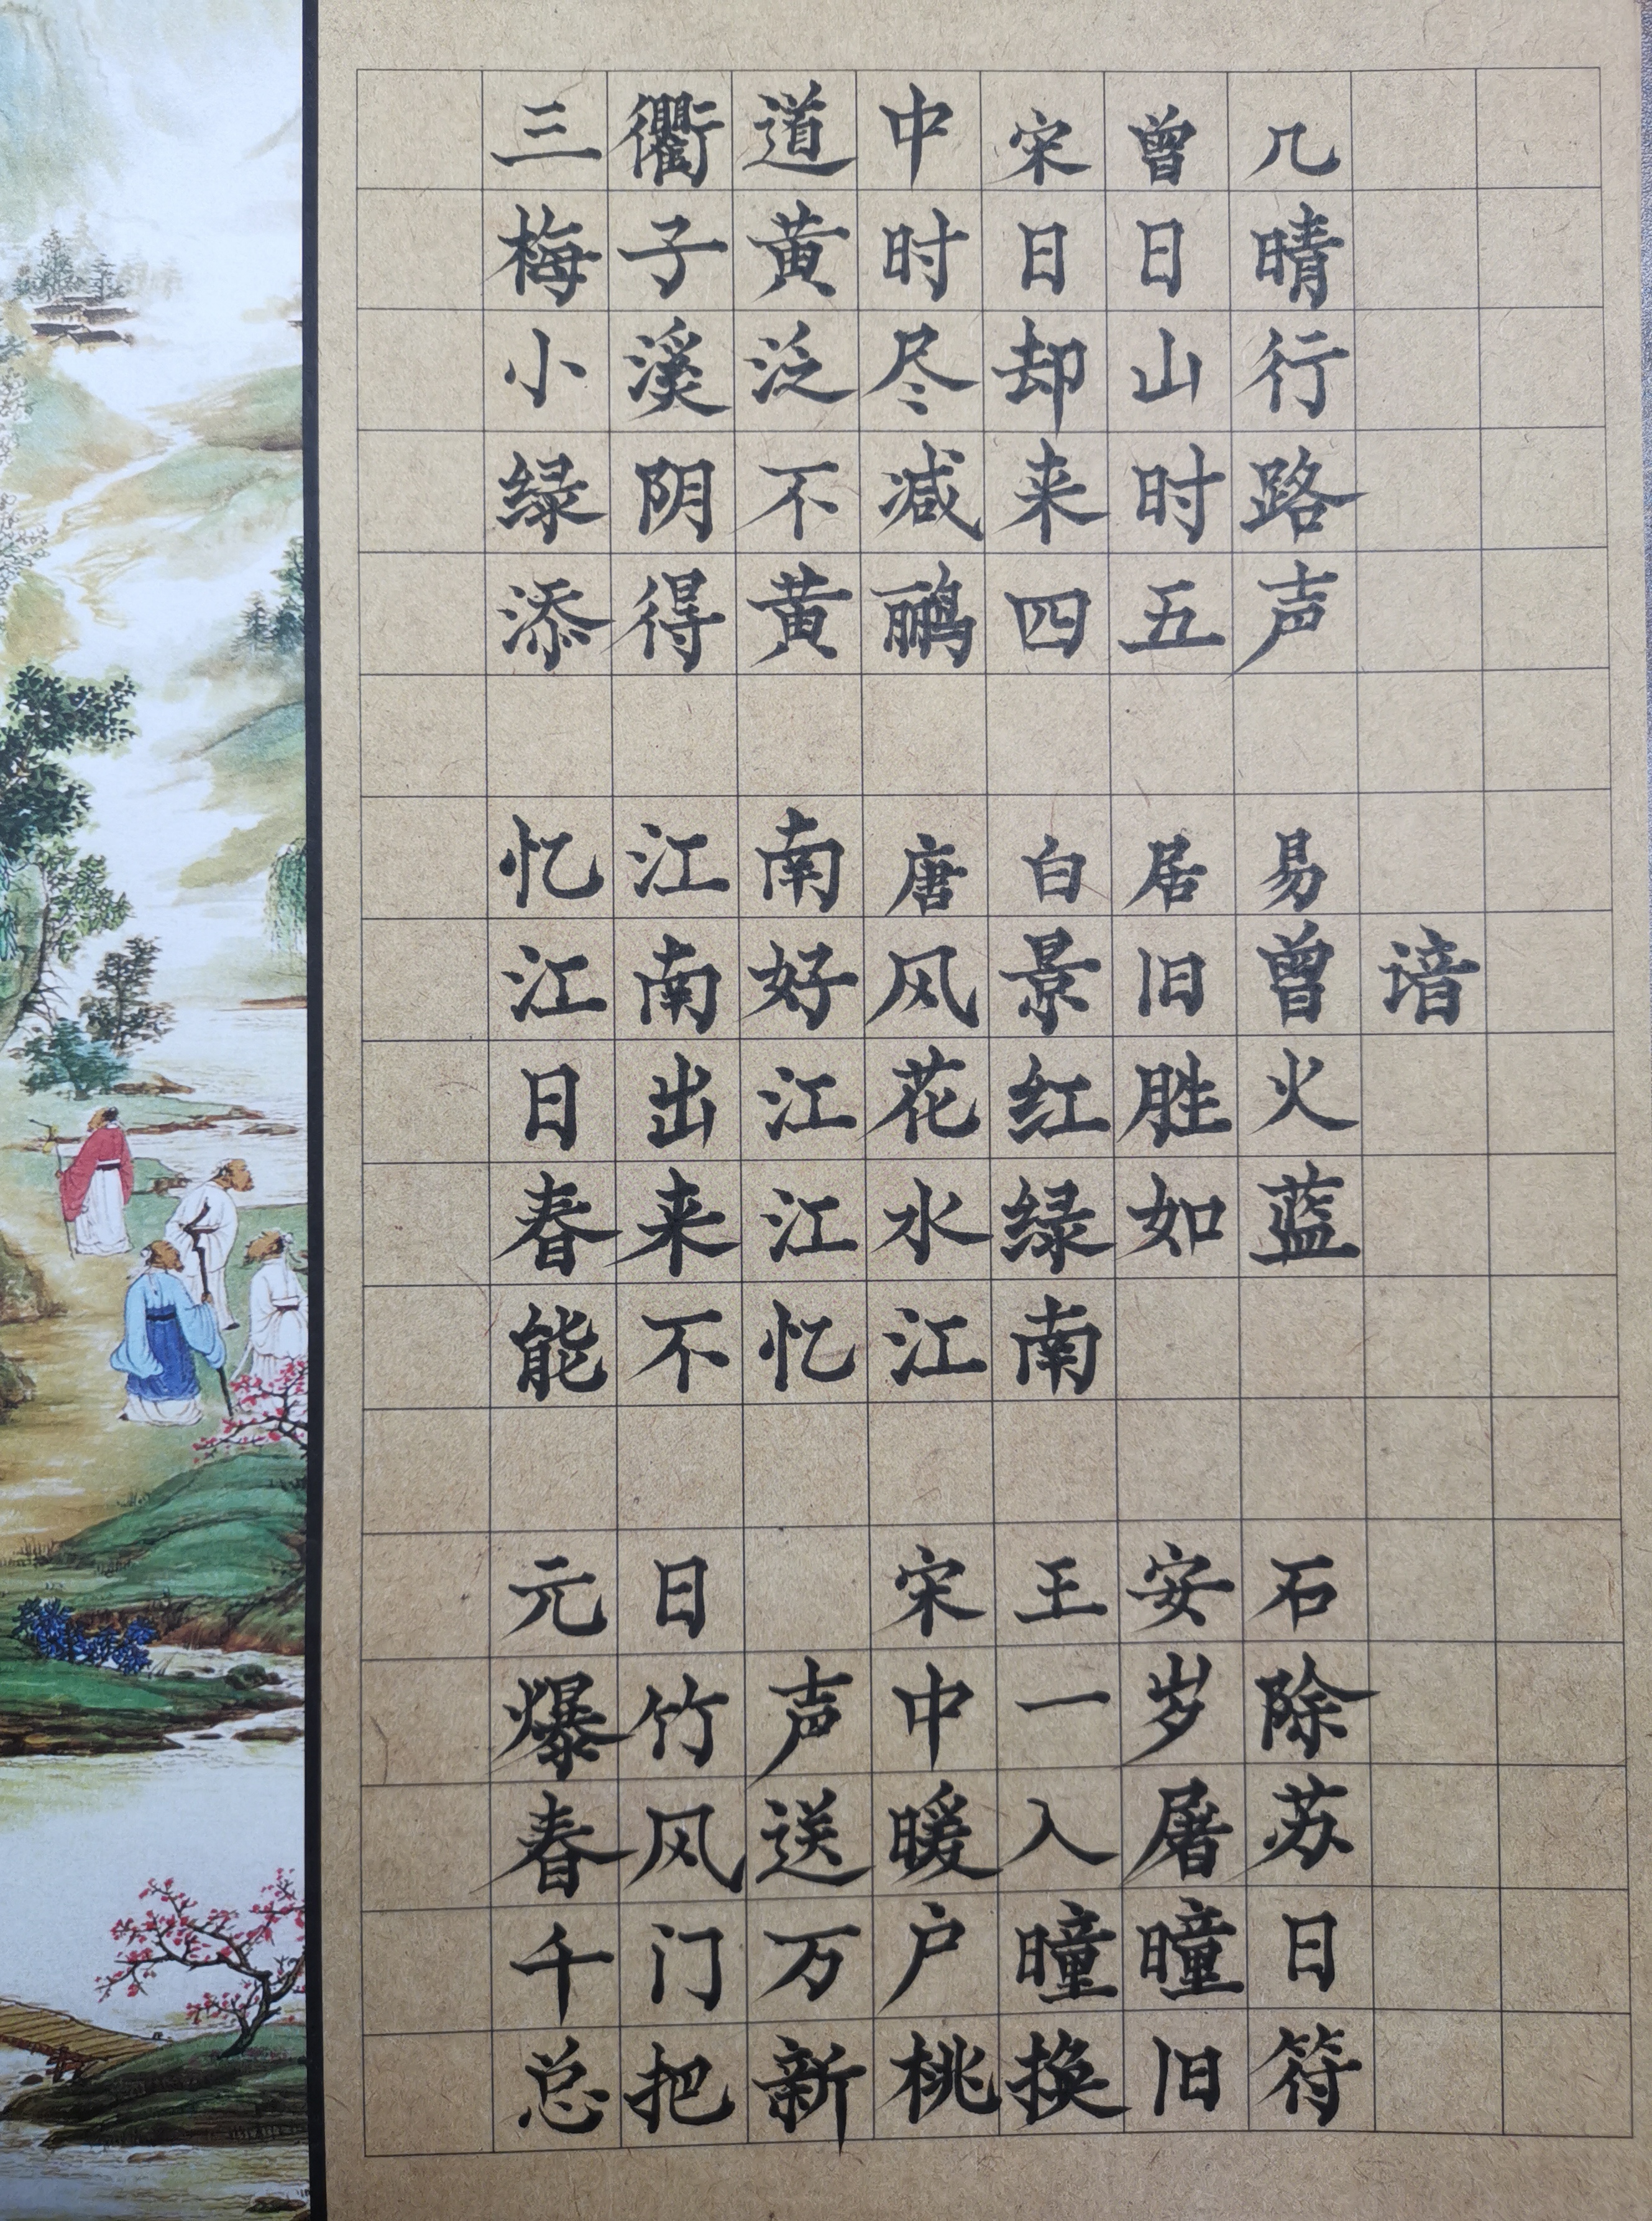 三衢道中宋曾几
梅子黄时日日晴
小溪泛尽却山行
绿阴不减来时路
添得黄鹂四五声
忆江南唐白居易
江南好风景旧曾谙
日出江花红胜火
春来江水绿如蓝
能不忆江南
元日 宋王安石
爆竹声中一岁除
春风送暖入屠苏
千门万户曈曈日
总把新桃换旧符